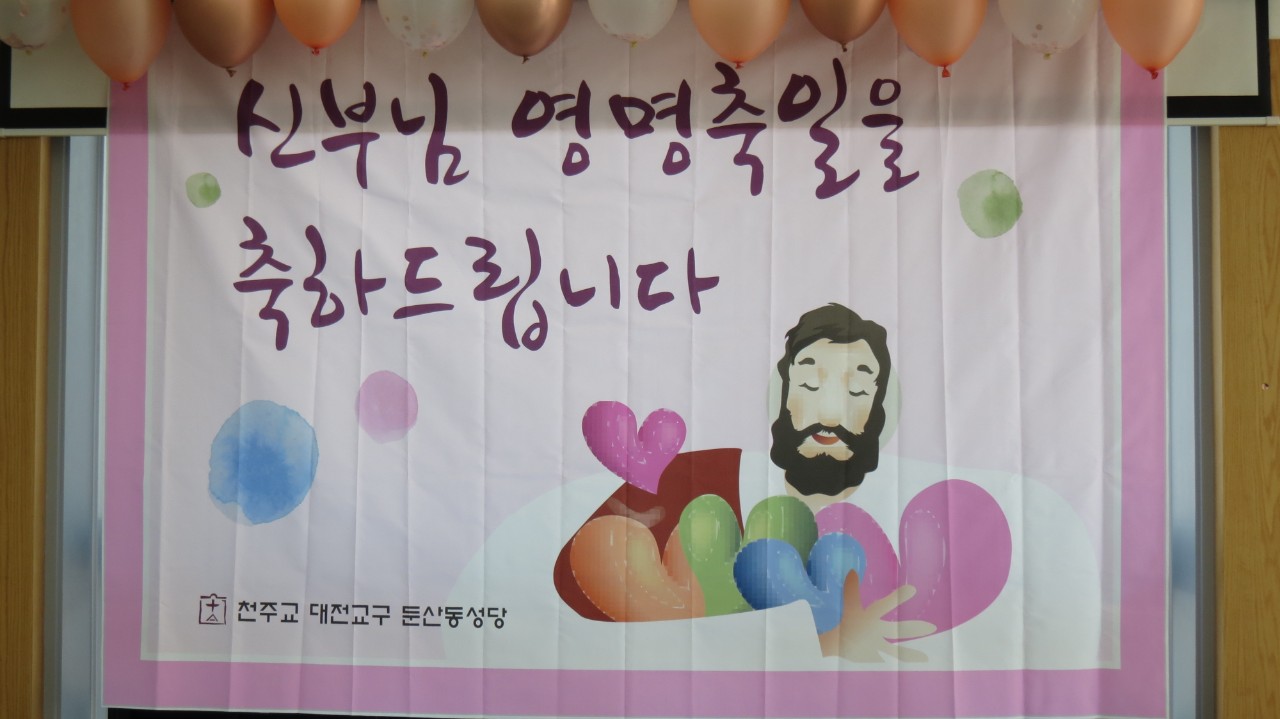 신부님 영명축일을
축하드립니다
천주교 대전교구 둔산동성당